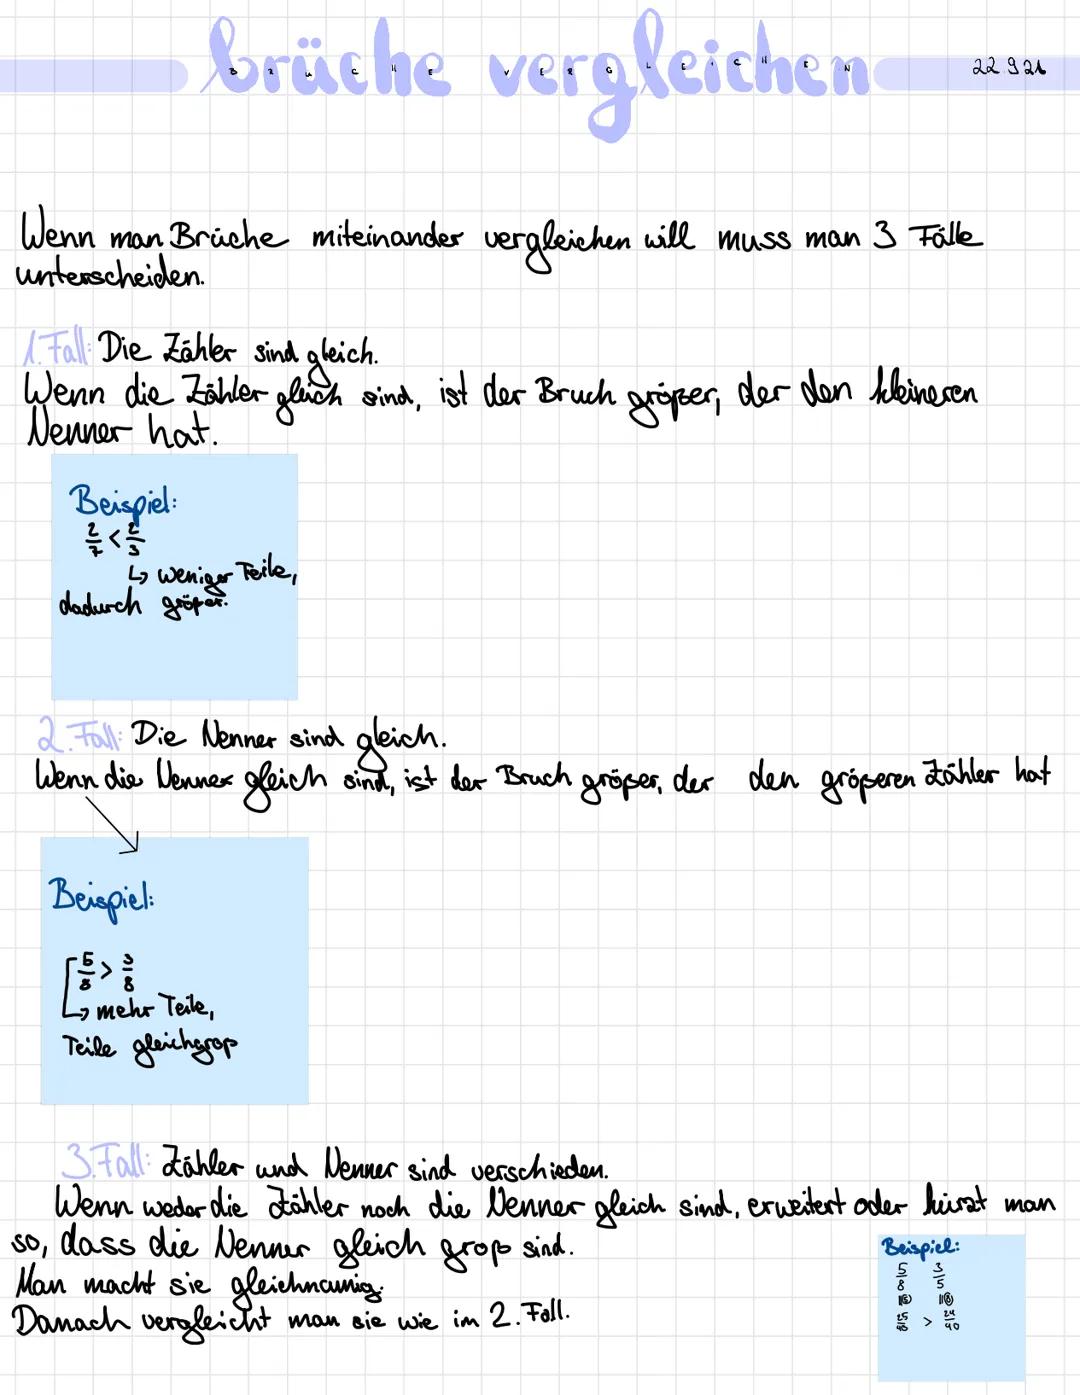 brüche vergleichen
BRUCHE VERGLEICHEN
22.9.21
Wenn man Brüche miteinander vergleichen will muss man 3 Fälle
unterscheiden.
1. Fall: Die Zähler sind gleich.
Wenn die Zähler gleich sind, ist der Bruch größer, der den kleineren
Nenner hat.
Beispiel:
2/7 < 2/3
↳ weniger Teile,
dadurch größer.
2. Fall: Die Nenner sind gleich.
Wenn die Nenner gleich sind, ist der Bruch größer, der den größeren Zähler hat
Beispiel:
5/8 > 3/8
↳ mehr Teile,
Teile gleichgroß
3. Fall: Zähler und Nenner sind verschieden.
Wenn weder die Zähler noch die Nenner gleich sind, erweitert oder kürzt man
so, dass die Nenner gleich groß sind.
Man macht sie gleichnamig.
Danach vergleicht man sie wie im 2. Fall.
Beispiel:
5/8 3/5
||⑤ ||⑧
25/40 > 24/40